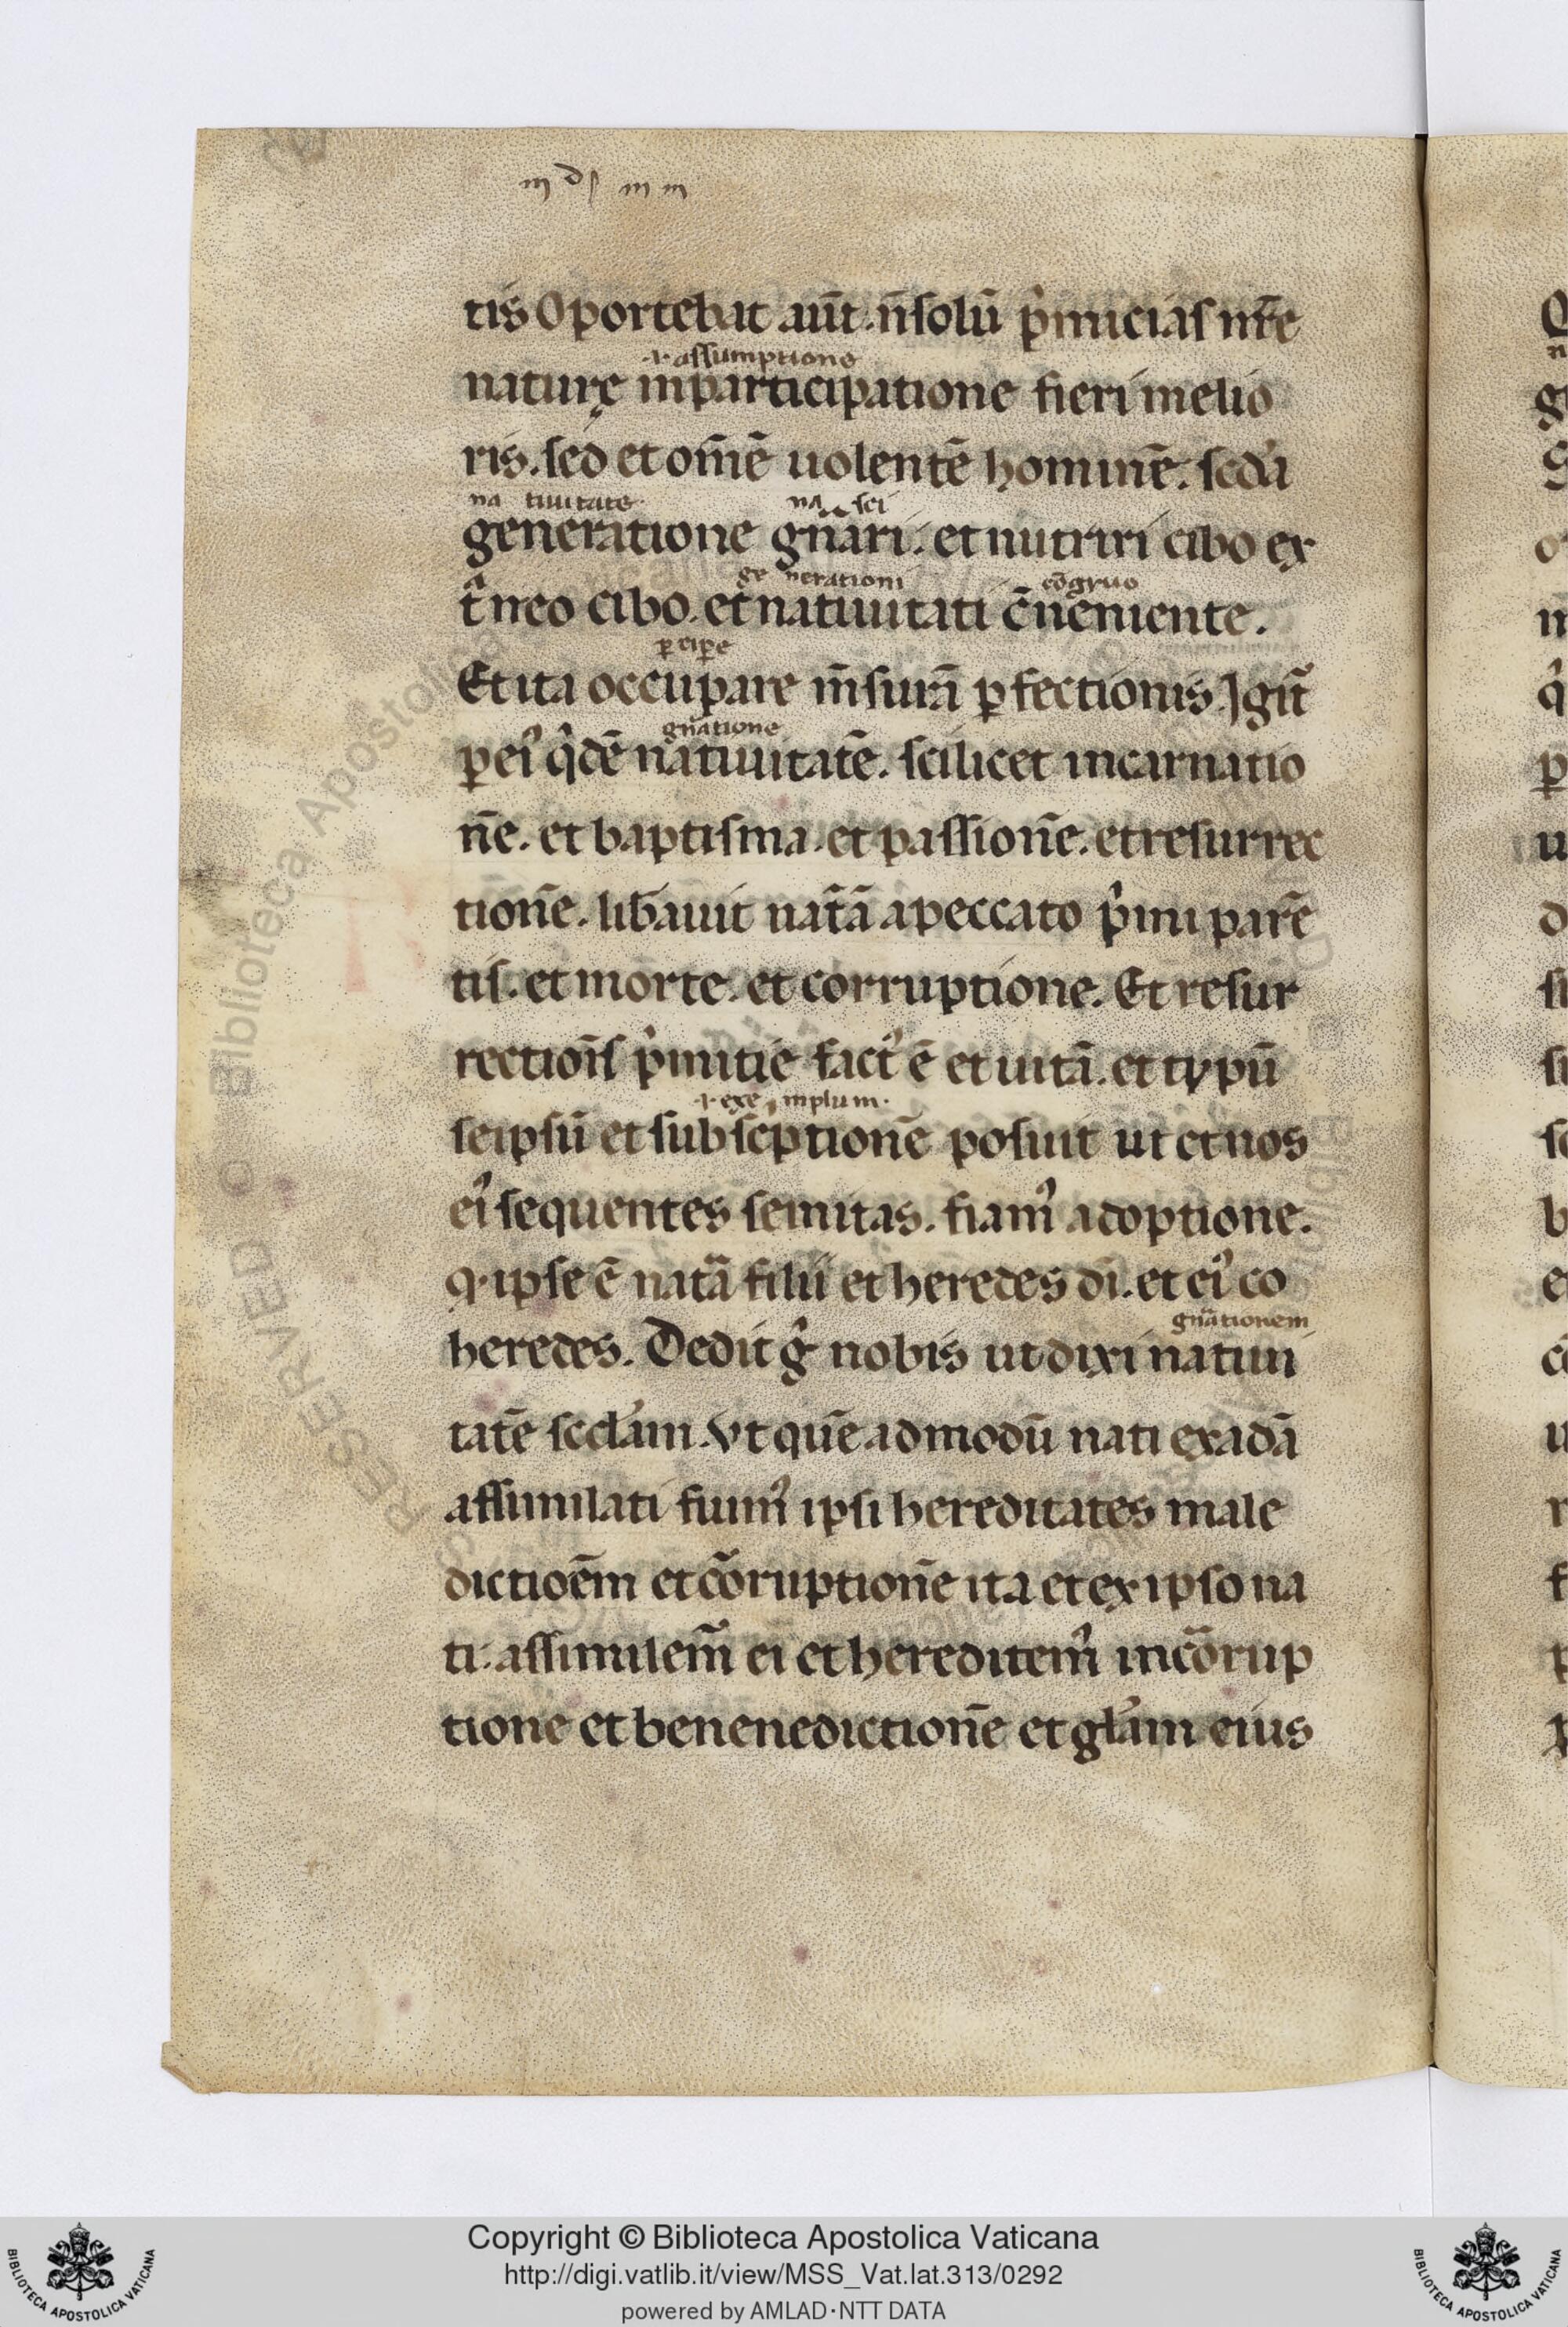 m ds m m
tis Oportebat aūt. n̄ solū p̍micias nr̄e
.i. assumptione
naturę in participatione fieri melio
ris. sed et om̄ē uolentē hominē. scd̓a
na tiuitate na sci
generatione gn̄ari. et nutriri cibo ex
ge nerationi cōgruo
cibo. et natiuitati c̄ueniente.
ꝑciꝑe
Et ita occupare m̄surā ꝑfectionis. Igit᷑
gn̄atione
ꝑ ei᾽ q̍dē natiuitatē. scilicet incarnatio
nē. et baptisma. et passionē. et resurrec
tionē. lib̄auit nat̄ā a peccato p̍mi parē
tis. et morte. et corruptione. Et resur
rectiōis p̍mitie fact᾽ ē et uitā. et typū
.i. exe mplum.
seipsū et subsc̍ptionē posuit ut et nos
ei᾽ sequentes semitas. fiam᾽ adoptione.
q. ipse ē natā filii et heredes dī. et ei᾽ co
gn̄ationem
heredes. Dedit g̊ nobis ut dixi natiui
tatē scd̓am. Vt quē admodū nati ex adā
assimilati fuim᾽ ipsi hereditates male
dictiōem et cōruptionē ita et ex ipso na
ti. assimilem᷑ ei et hereditem᾽ incōrup
tione et benenedictionē et gl̓am eius
Copyright © Biblioteca Apostolica Vaticana
http://digi.vatlib.it/view/MSS_Vat.lat.313/0292
powered by AMLAD·NTT DATA
BIBLIOTECA APOSTOLICA VATICANA
BIBLIOTECA APOSTOLICA VATICANA